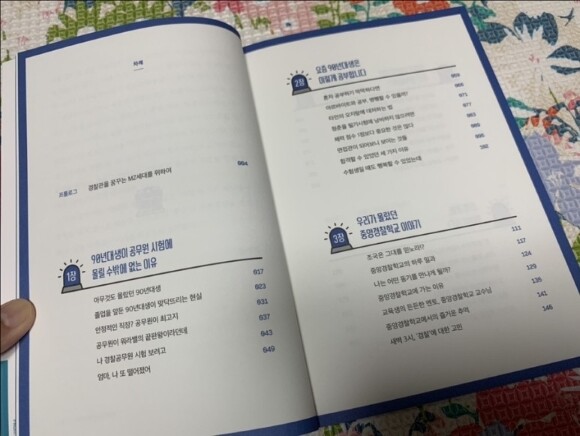 차례
프롤로그 경찰관을 꿈꾸는 MZ세대를 위하여 004
1장
90년대생이 공무원 시험에
몰릴 수밖에 없는 이유
아무것도 몰랐던 90년대생 017
졸업을 앞둔 90년대생이 맞닥뜨리는 현실 023
안정적인 직장? 공무원이 최고지 031
공무원이 워라밸의 끝판왕이라던데 037
나 경찰공무원 시험 보려고 043
엄마, 나 또 떨어졌어 049
2장
요즘 90년대생은
이렇게 공부합니다
혼자 공부하기 막막하다면 059
아르바이트로 공부, 병행할 수 있을까?
타인의 오지랖에 대처하는 법 071
청춘을 필기시험에 낭비하지 않으려면 077
체력 점수 1점보다 중요한 것은 많다
면접관이 되어보니 보이는 것들
합격할 수 있었던 세 가지 이유
수험생일 때도 행복할 수 있었는데 102
3장
우리가 몰랐던
중앙경찰학교 이야기
조국은 그대를 믿노라!? 111
중앙경찰학교의 하루 일과 117
나는 어떤 동기를 만나게 될까? 124
중앙경찰학교에 가는 이유 129
교육생의 든든한 멘토, 중앙경찰학교 교수님
중앙경찰학교에서의 즐거운 추억
새벽 3시, '경찰'에 대한 고민